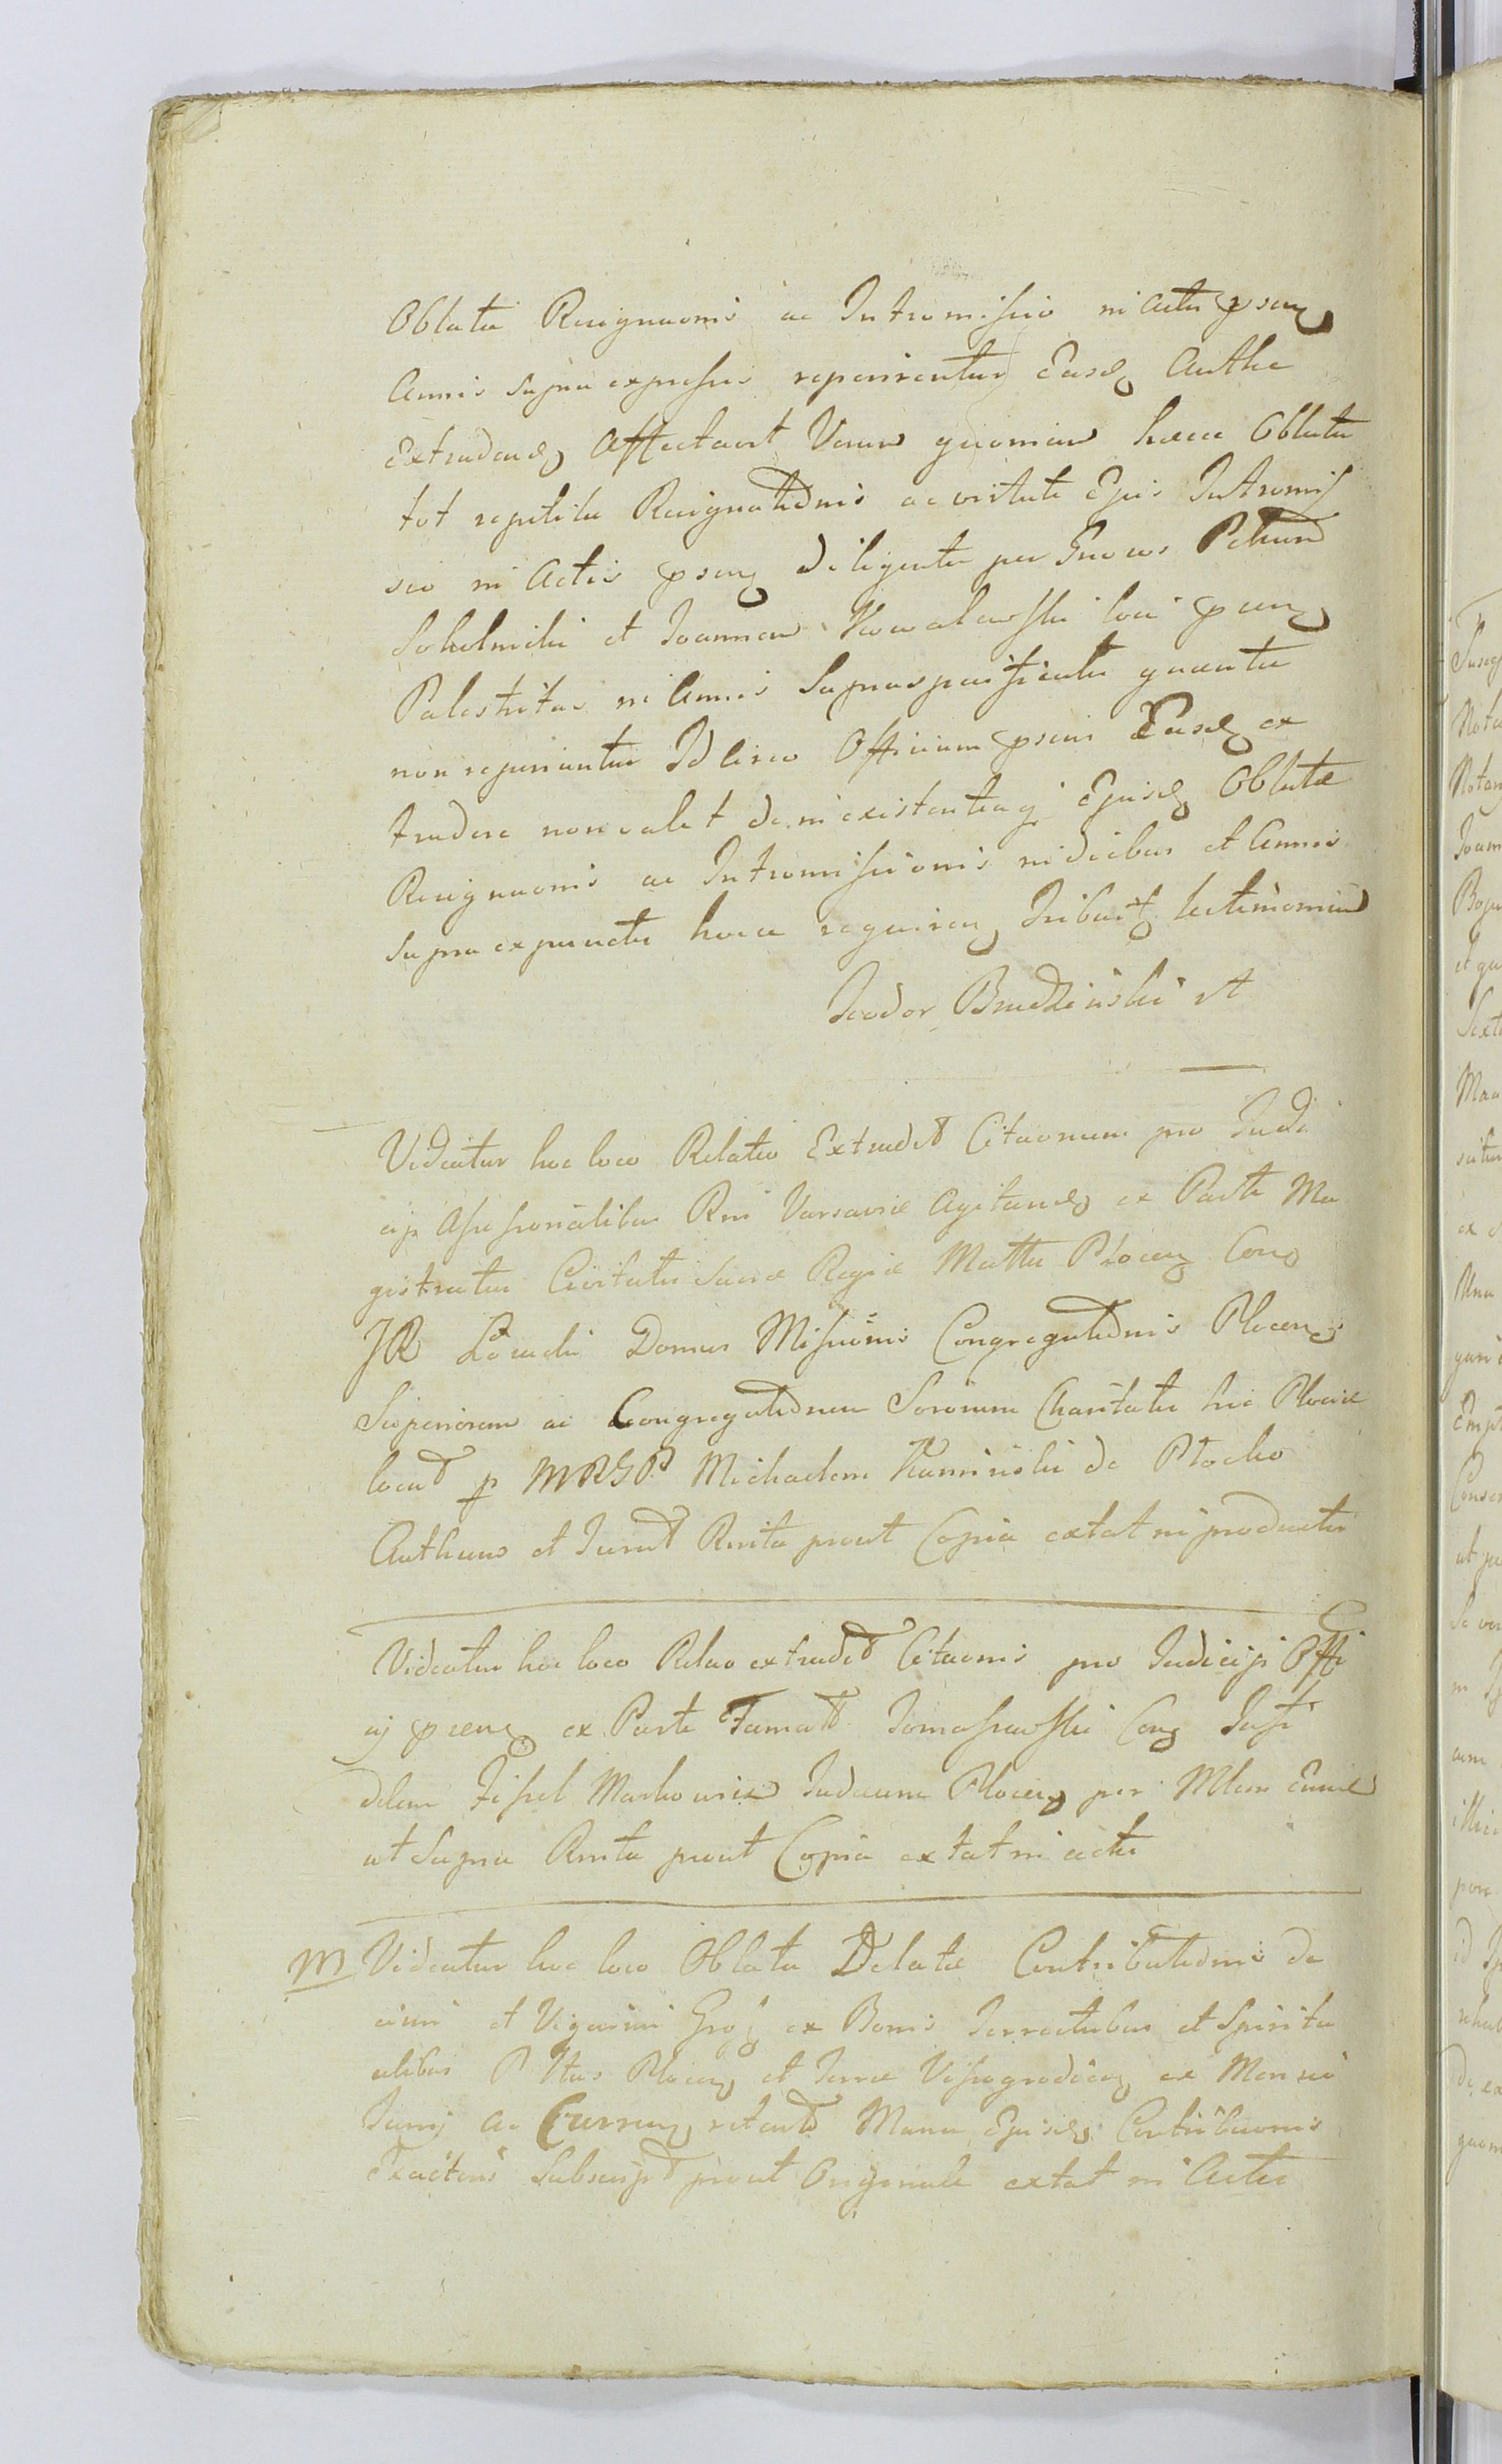 Oblata Resignaonis ac Intromissio in actis psen
Annis supra expressis reperirentur Easd Authe
Extradend Affectavit Verum quoniam haec Oblata
tot repetita Resignationis ac virtute Ejus Intromis
sio in Actis psen diligenter per Gnosos Petrum
Sokolnicki et Joannem Kowalewski loci psen
Palestritas in Annis supraspecificatis quaesita
non reperiuntur Idcirco Officium psens Easd ex
tradere non valet de inexistentiaq Ejusd Oblatae
Resignaonis ac Intromissionis in diebus et Annis
supra expressatis hocce requiren Tribuit testimonium
Teodor Brudziński
Videatur hoc loco Relatio Extradit Citaonum pro Judi
cijs Assessorialibus Rni Varsaviae Agitand ex Parte Ma
gistratus Civitatis Sacrae Regiae Mattis Plocen Con
JR Domus Missionis Congregationis Plocen
Superiorem ac Congregationem Sororum Charitatis hic Plociae
locat p MRGP Michaelem Kaminski de Plocko
Authum et Jurat Rnita prout Copia extat in productis
Videatur hoc loco Relao extradit Citaonis pro Judicijs Offi
cij psen ex Parte Famat Tomaszewski Con Infi
delem Fiszel Markowicz Judaeum Plocen per Mlem Eund
ut Supra Rnita prout Copia extat in actis
M Videatur hoc loco Oblata Delatae Contributionis de
cimi et Vigesimi Gros ex Bonis Terrestribus et Spiritu
alibus Pttus Plocen et Terrae Vissogrodien ex Mense
Junij ac Curren Manu Ejusd Contribuonis
Exactoris Subscript prout Originale extat in Actis